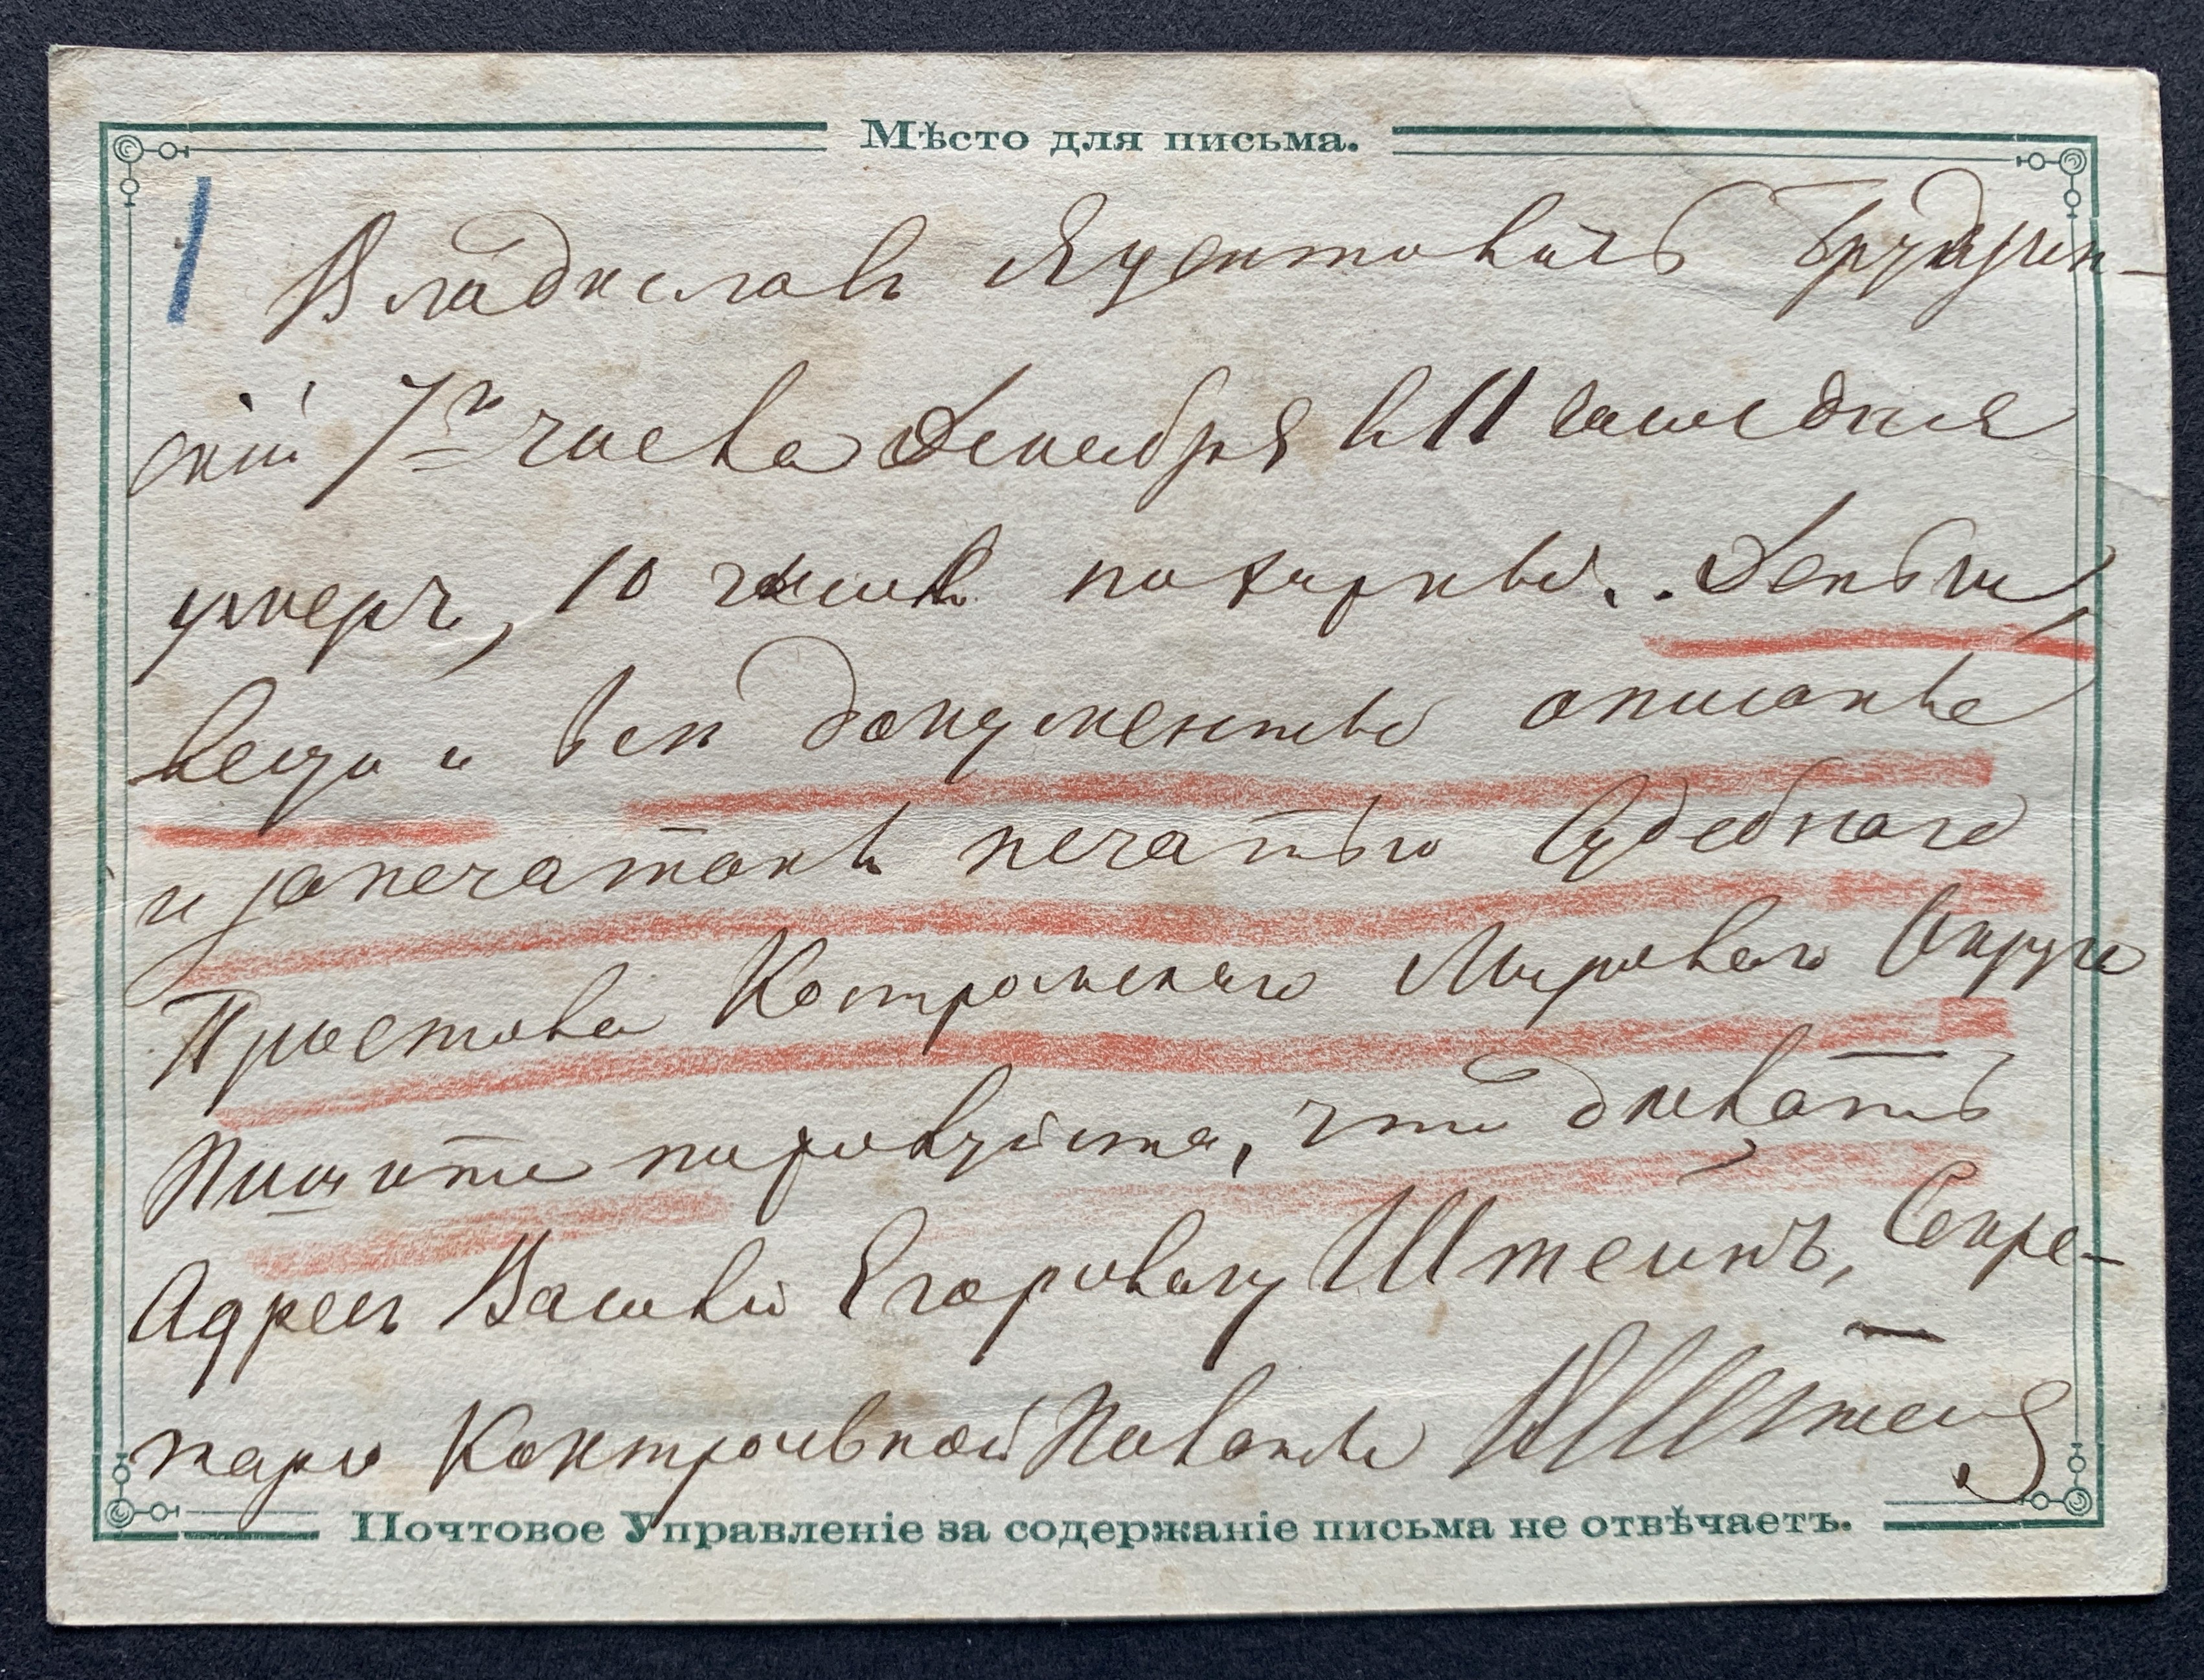 Мѣсто для письма.
Владиславъ
скій 7го числа Декабря в 11 часовъ дня
умеръ, 10 числа похороны. Деньги,
вещи и всѣ документы описаны
и запечатаны печатью Судебнаго
Пристава Костромскаго Мироваго Округа
Пишите пожалуйста, что дѣлать
Адресъ Василій Егоровичу Штейнъ, Секре-
тарю Контрольной Палаты
Почтовое Управленіе за содержаніе письма не отвѣчаетъ.